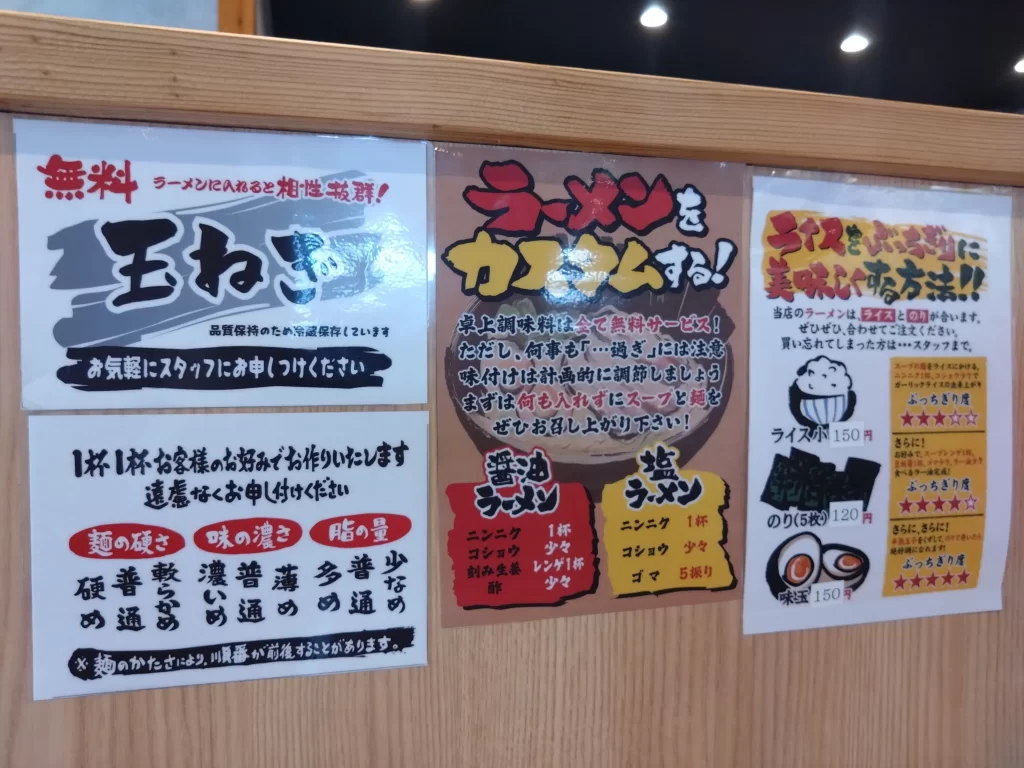 無料 ラーメンに入れると相性抜群!
玉ねぎ
品質保持のため冷蔵保存しています
お気軽にスタッフにお申しつけください
1杯1杯お客様のお好みでお作りいたします
遠慮なくお申し付けください
麺の硬さ 味の濃さ 脂の量
硬め 普通 軟らかめ 濃いめ 普通 薄め 多め 普通 少なめ
※麺のかたさにより、順番が前後することがあります。
ラーメンを
カスタムする!
卓上調味料は全て無料サービス!
ただし、何事も「…過ぎ」には注意
味付けは計画的に調節しましょう
まずは何も入れずにスープと麺を
ぜひお召し上がり下さい!
醤油
ラーメン
ニンニク 1杯
コショウ 少々
刻み生姜 レンゲ1杯
酢 少々
塩
ラーメン
ニンニク 1杯
コショウ 少々
ゴマ 5振り
ライスをぶっちぎりに
美味しくする方法!!
当店のラーメンは、ライスとのりが合います。
ぜひぜひ、合わせてご注文ください。
買い忘れてしまった方は…スタッフまで。
ライス小 150円
のり(5枚) 120円
味玉 150円
ぶっちぎり度
★★★☆☆
さらに!
ぶっちぎり度
★★★★☆
さらに、さらに!
ぶっちぎり度
★★★★★